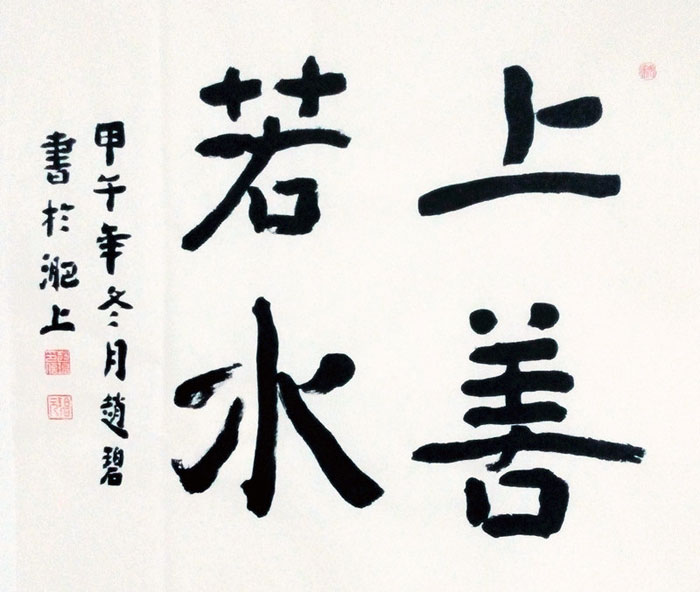 上善
若水
甲午年冬月趙碧
書於淝上